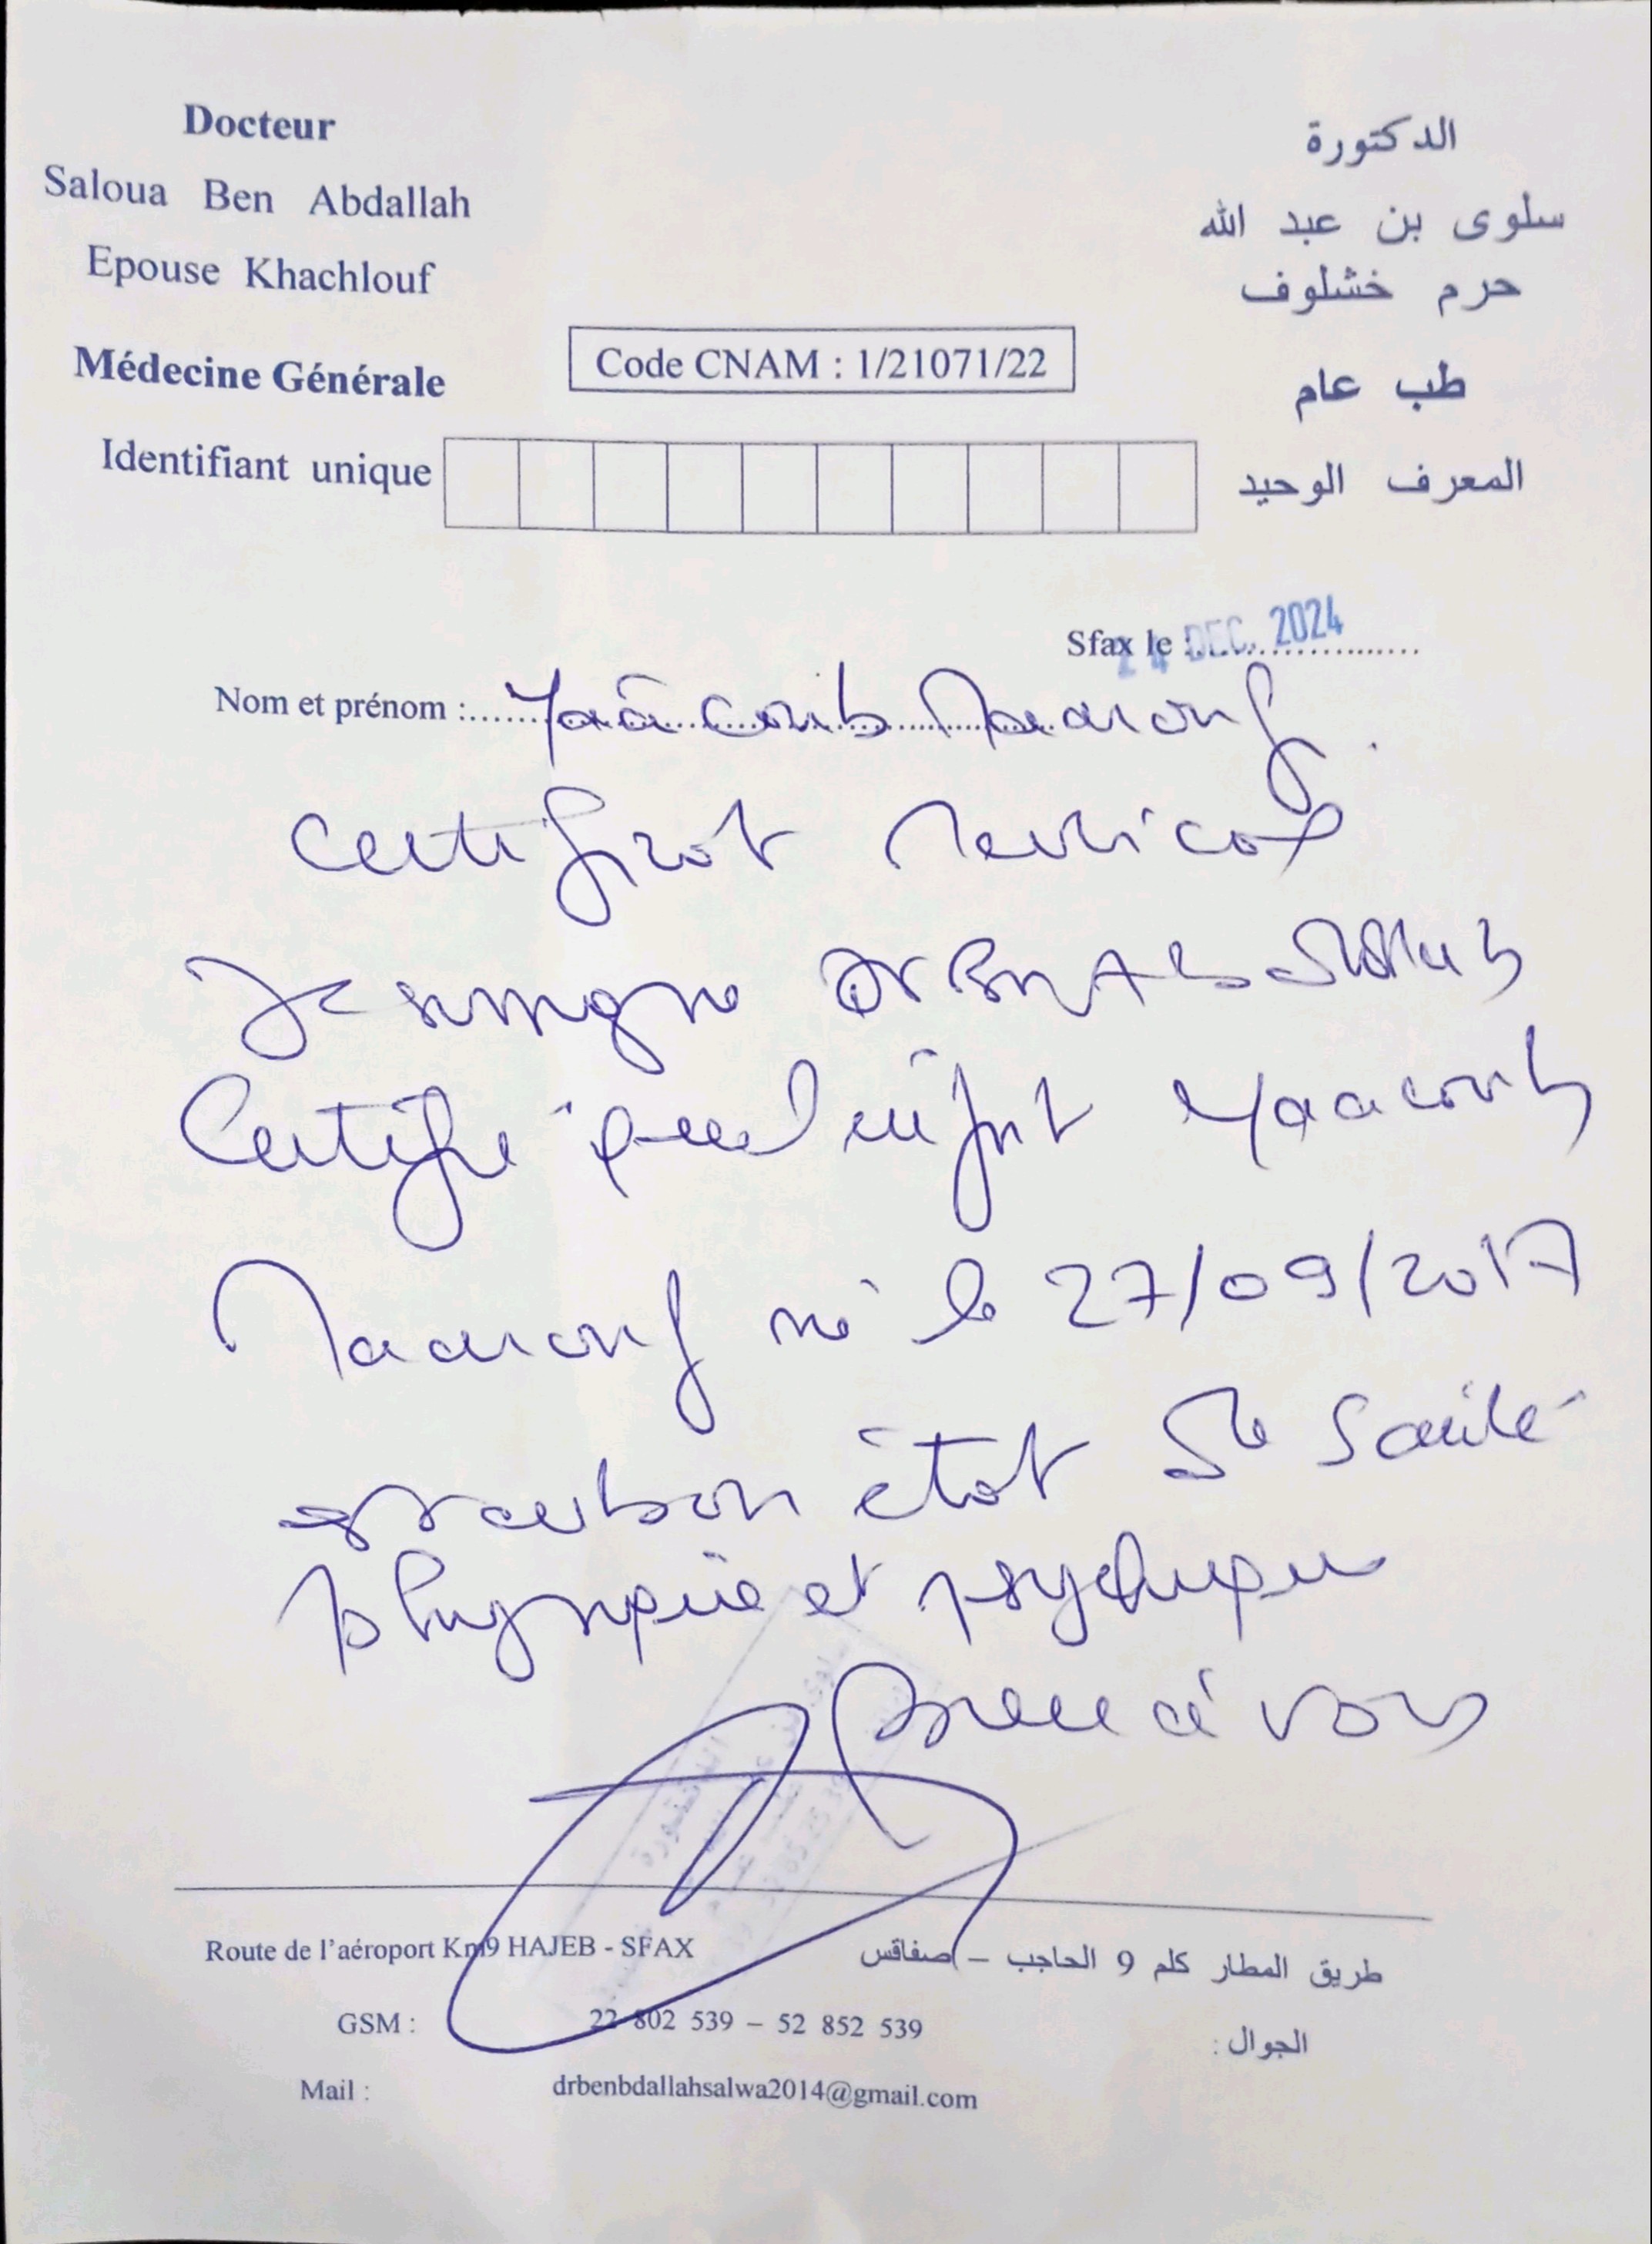 Docteur
Saloua Ben Abdallah
Epouse Khachlouf
Médecine Générale
Identifiant unique
Code CNAM : 1/21071/22
الدكتورة
سلوى بن عبد الله
حرم خشلوف
طب عام
المعرف الوحيد
Sfax le : 24 DEC. 2024
Nom et prénom : Yaâcoub Maarouf
Certificat Medical
Je soussigné Dr Ben Abdallah
Certifie que l'enfant Yaacoub
Maarouf né le 27/09/2017
est en bon état de santé
physique et psychique
à vous
الدكتورة
Route de l'aéroport Km9 HAJEB - SFAX
طريق المطار كلم 9 الحاجب – صفاقس
GSM : 22 802 539 – 52 852 539 الجوال :
Mail : drbenbdallahsalwa2014@gmail.com